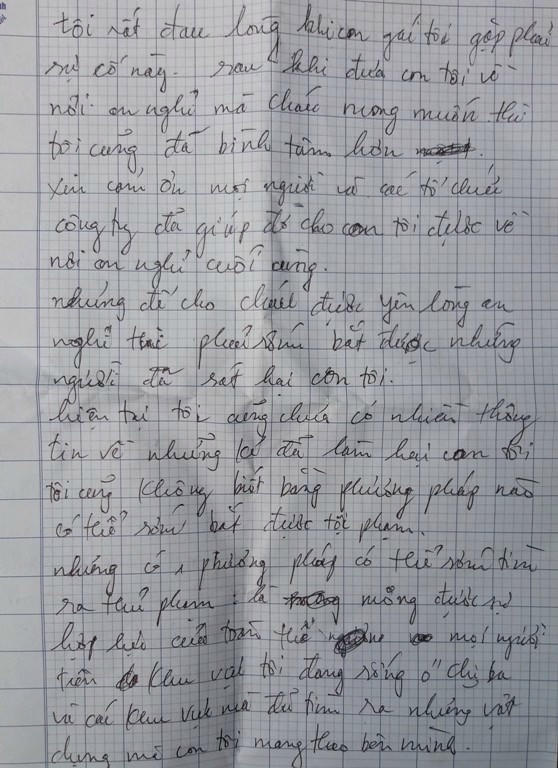 tôi rất đau lòng khi con gái tôi gặp phải
sự cố này. sau khi đưa con tôi về
nơi an nghỉ mà cháu mong muốn thì
tôi cũng đã bình tâm hơn
xin cảm ơn mọi người và các tổ chức
công ty đã giúp đỡ cho con tôi được về
nơi an nghỉ cuối cùng.
nhưng để cho cháu được yên lòng an
nghỉ thì phải sớm bắt được những
người đã sát hại con tôi.
hiện tại tôi cũng chưa có nhiều thông
tin về những kẻ đã làm hại con tôi
tôi cũng không biết bằng phương pháp nào
có thể sớm bắt được tội phạm.
nhưng có 1 phương pháp có thể sớm tìm
ra thủ phạm: là mong được sự
hợp lực của toàn thể mọi người
trên khu vực tôi đang sống ở chi ba
và các khu vực mà để tìm ra những vật
dụng mà con tôi mang theo bên mình.